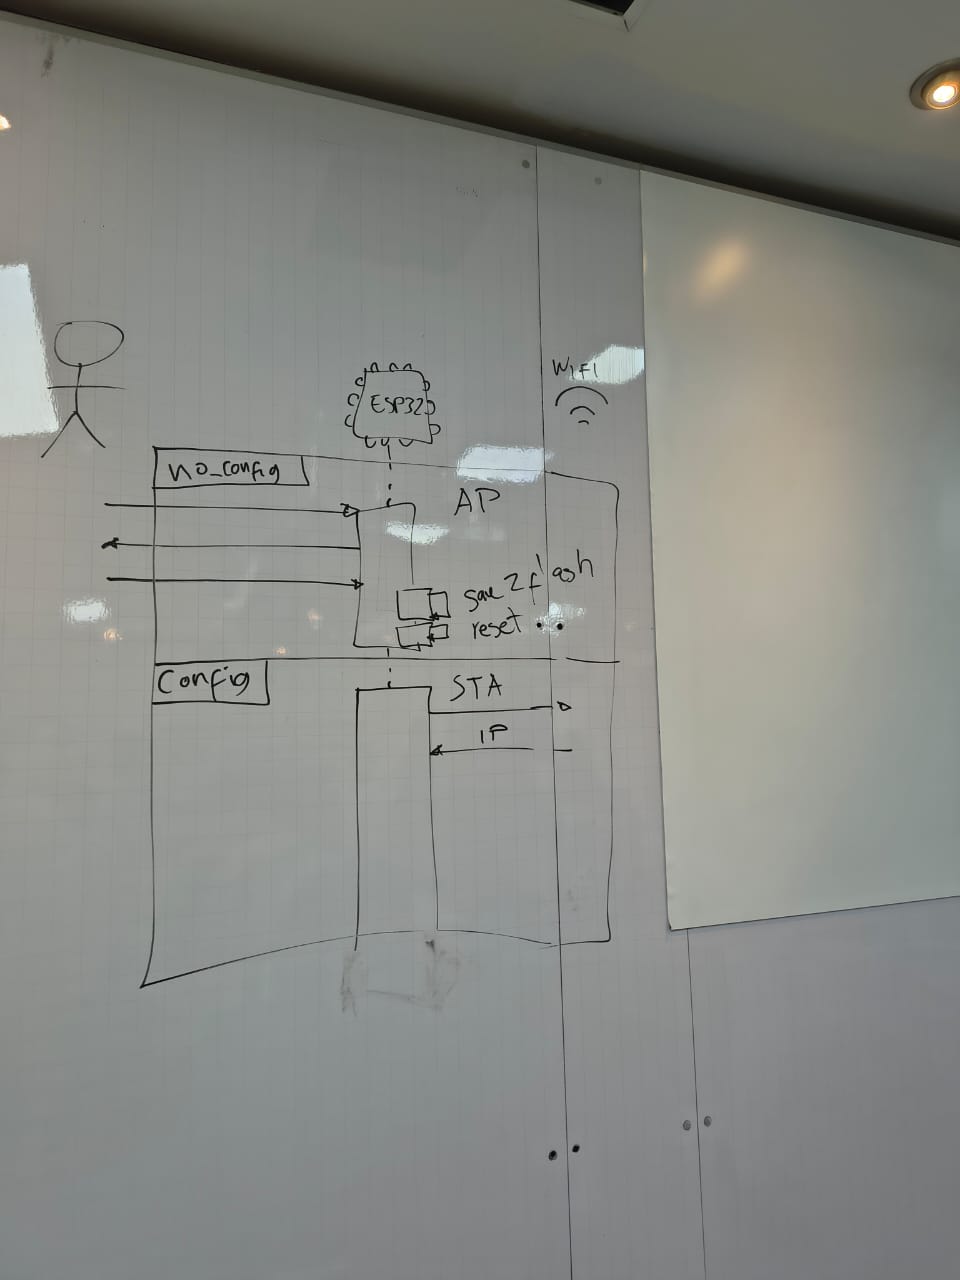 WIFI
ESP32
no_config
AP
save 2 flash
reset
Config
STA
IP